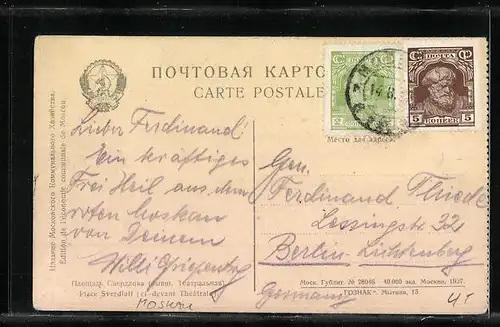 ПОЧТОВАЯ КАРТО
CARTE POSTALE
Издание Московского Коммунального Хозяйства.
Edition de l'économie communale de Moscou
ПОЧТА
5 КОПЕЕК 5
Место для адреса.
Lieber Ferdinand!
Ein kräftiges
Frei Heil aus dem
roten Moskau
von Deinem
Willi
Gen.
Ferdinand Thiede
Lessingstr 32
Berlin-Lichtenberg
Germany
Площадь Свердлова (бывш. Театральная)
Place Sverdloff (ci-devant Théâtrale)
MOSKAU
Моск. Гублит. № 28046 40.000 экз. Москва, 1927.
"ГОЗНАК". Мытная, 18